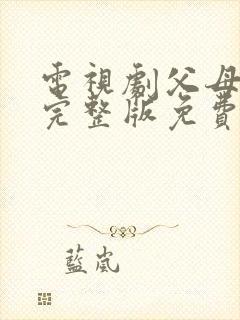 電視劇父母
完整版免費
藍嵐